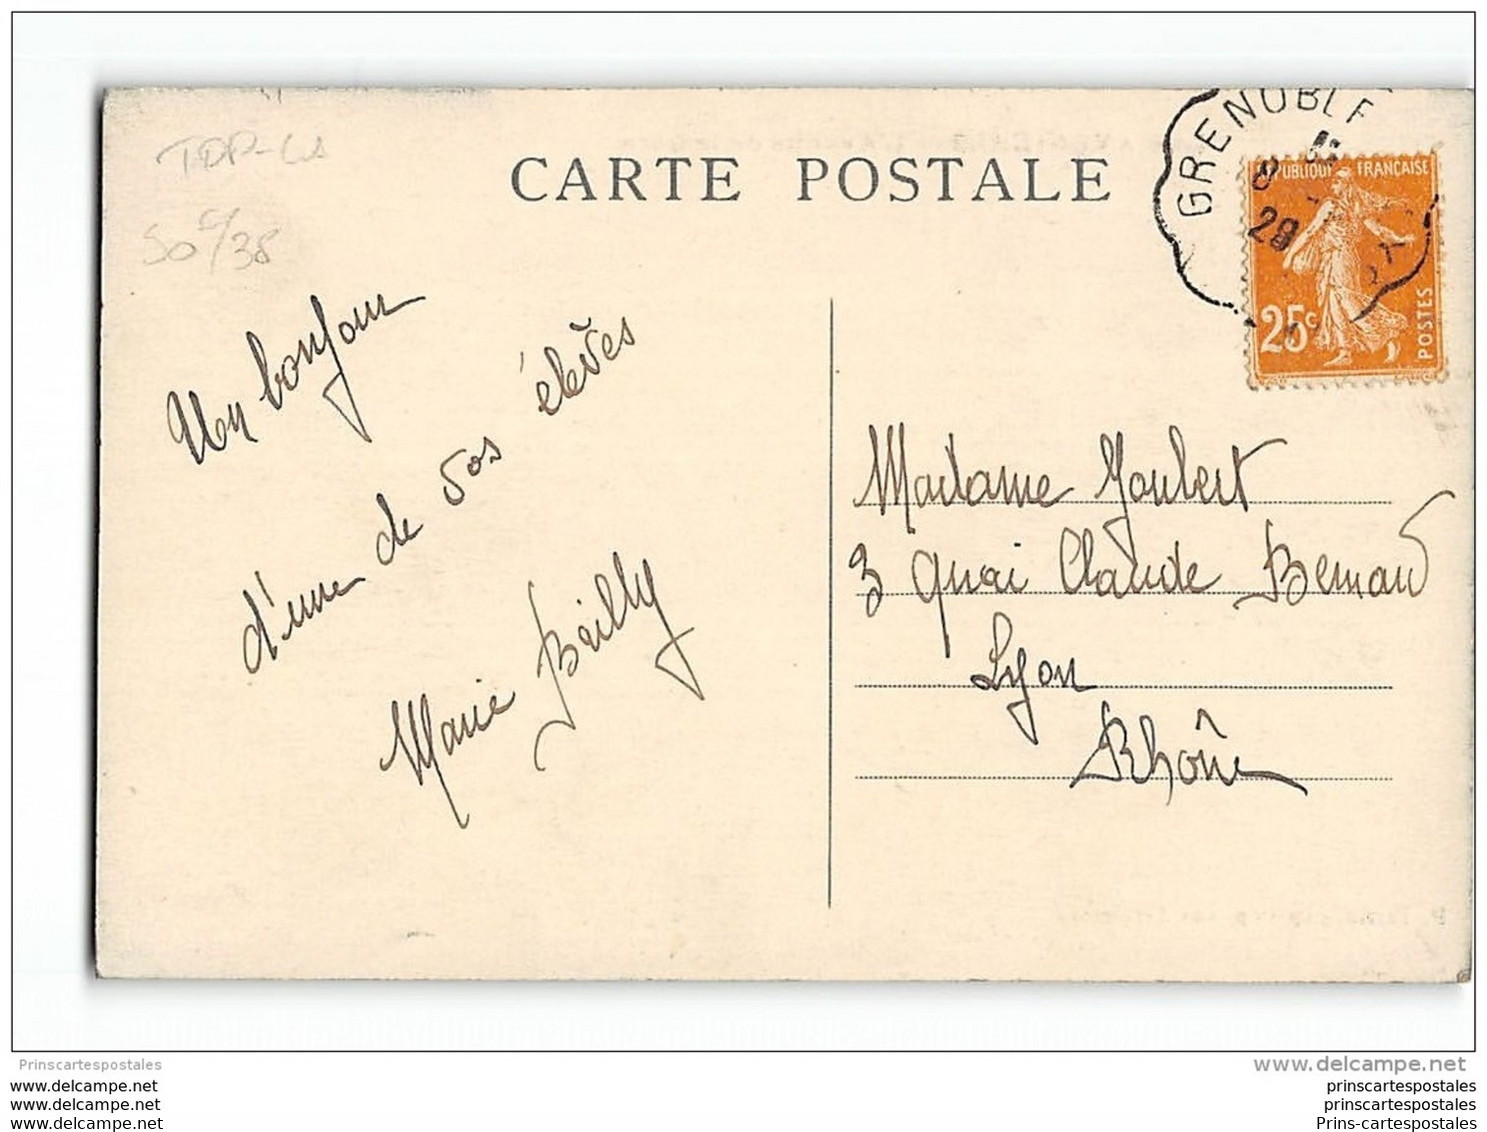 CARTE POSTALE
GRENOBLE
8
28
RÉPUBLIQUE FRANÇAISE
25c
POSTES
50 c/38
Un bonjour
d'une de vos élèves
Marie Bailly
Madame Joubert
3 Quai Claude Bernard
Lyon
Rhône
Prinscartespostales
www.delcampe.net
www.delcampe.net
www.delcampe.net
www.delcampe.net
prinscartespostales
prinscartespostales
Prins-cartespostales